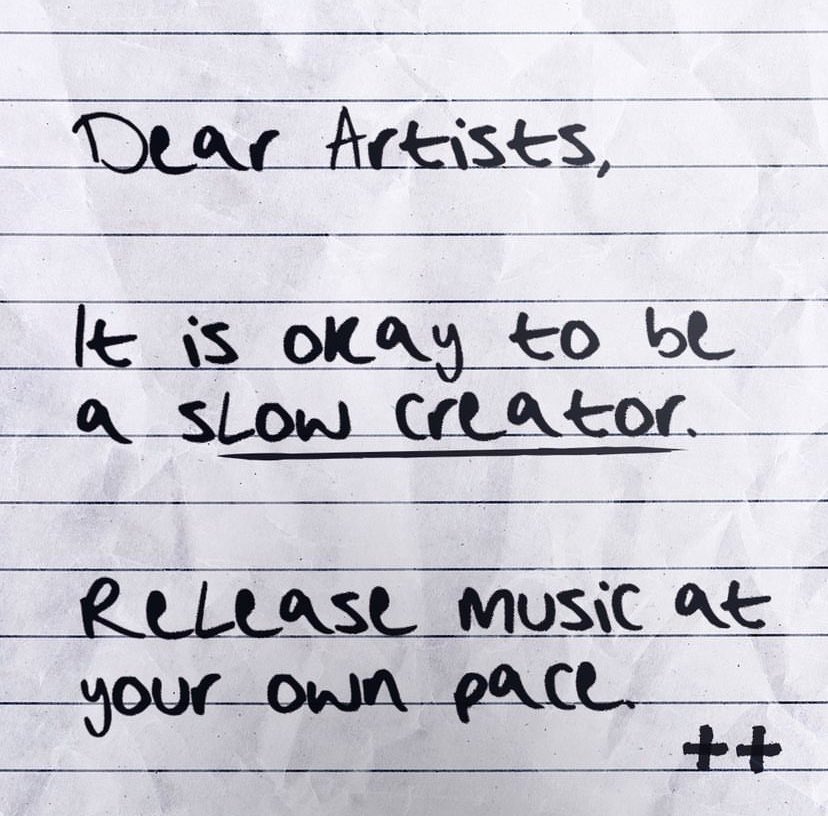 Dear Artists,
It is okay to be
a slow creator.
Release music at
your own pace.
++